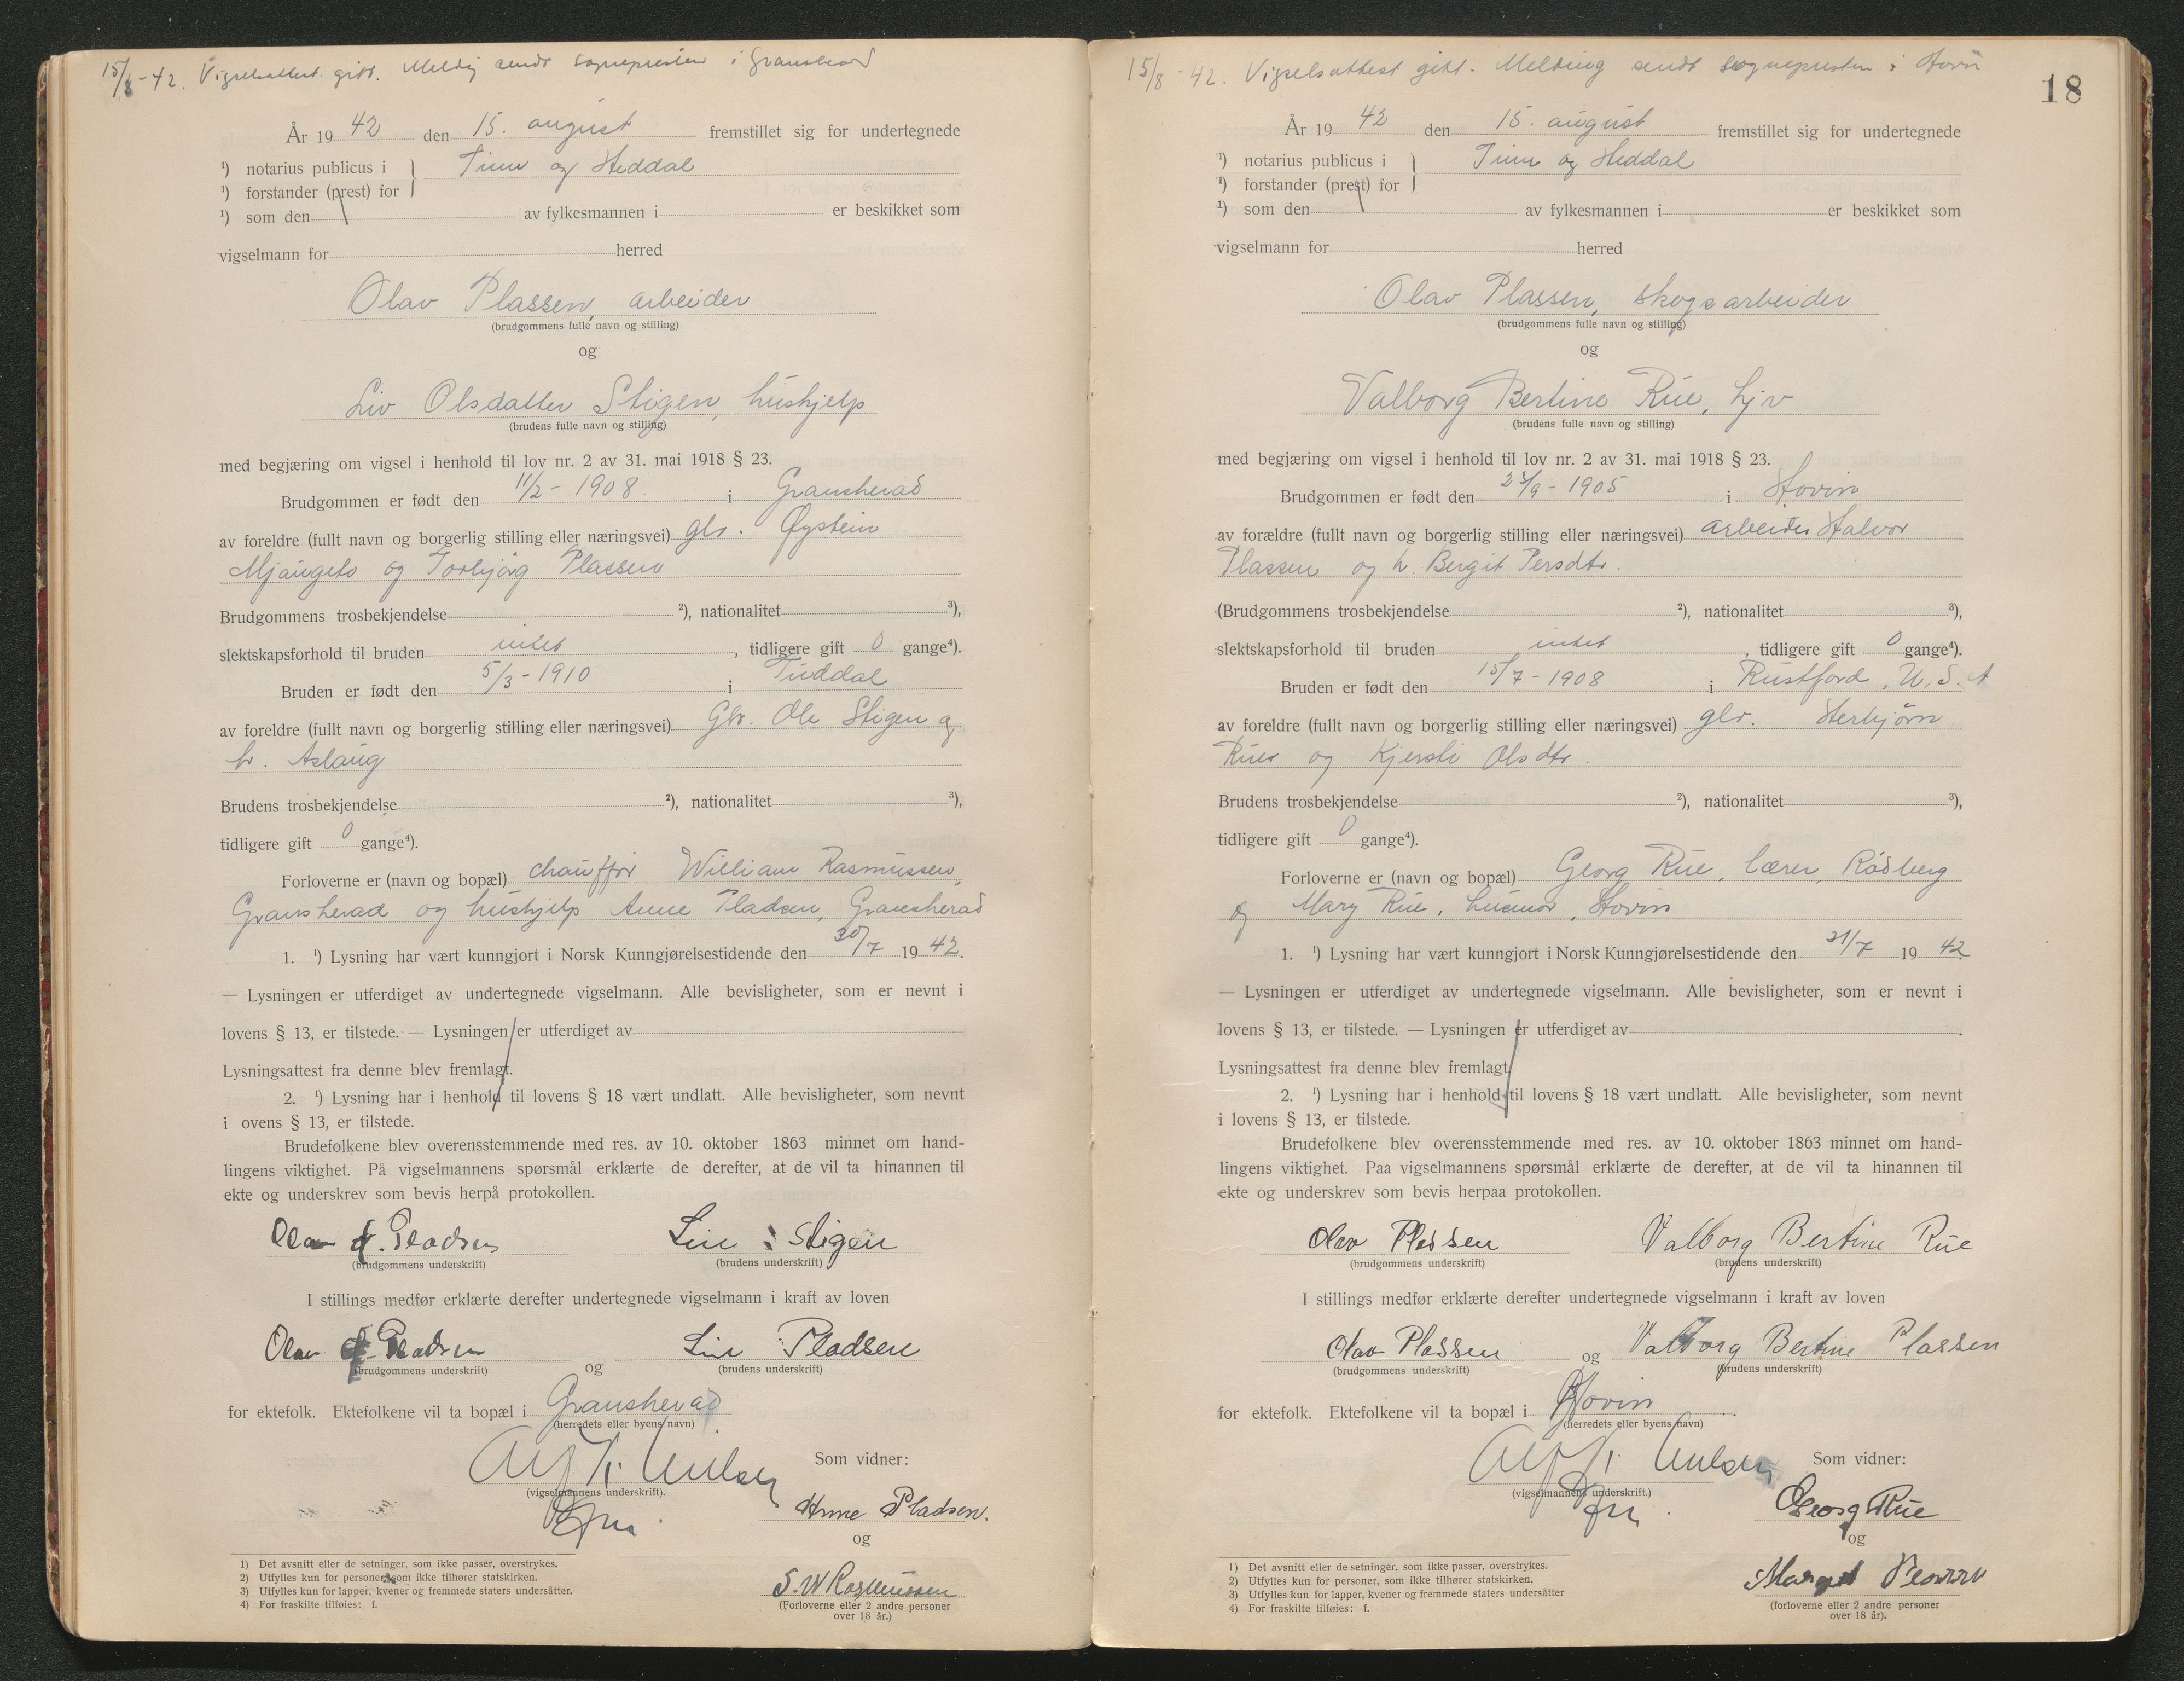 15/8-42. Vigselsattest gitt. Melding sendt sognepresten i Gransherad
År 1942 den 15. august fremstillet sig for undertegnede
¹) notarius publicus i } Tinn og Heddal
¹) forstander (prest) for
¹) som den av fylkesmannen i er beskikket som
vigselmann for herred
Olav Plassen, arbeider
(brudgommens fulle navn og stilling)
og
Liv Olsdatter Stigen, hushjelp
(brudens fulle navn og stilling)
med begjæring om vigsel i henhold til lov nr. 2 av 31. mai 1918 § 23.
Brudgommen er født den 11/2-1908 i Gransherad
av foreldre (fullt navn og borgerlig stilling eller næringsvei) gbr. Øystein
og Torbjørg Plassen
Brudgommens trosbekjendelse ²), nationalitet ³),
slektskapsforhold til bruden intet, tidligere gift 0 gange⁴).
Bruden er født den 5/3-1910 i Tuddal
av foreldre (fullt navn og borgerlig stilling eller næringsvei) Gbr. Ole Stigen og
h. Aslaug
Brudens trosbekjendelse ²), nationalitet ³),
tidligere gift 0 gange⁴).
Forloverne er (navn og bopæl) chauffør William Rasmussen,
Gransherad og hushjelp Anne Pladsen, Gransherad
1. ¹) Lysning har vært kunngjort i Norsk Kunngjørelsestidende den 30/7 1942.
— Lysningen er utferdiget av undertegnede vigselmann. Alle bevisligheter, som er nevnt i
lovens § 13, er tilstede. — Lysningen er utferdiget av
Lysningsattest fra denne blev fremlagt.
2. ¹) Lysning har i henhold til lovens § 18 vært undlatt. Alle bevisligheter, som nevnt
i ovens § 13, er tilstede.
Brudefolkene blev overensstemmende med res. av 10. oktober 1863 minnet om hand-
lingens viktighet. På vigselmannens spørsmål erklærte de derefter, at de vil ta hinannen til
ekte og underskrev som bevis herpå protokollen.
Olav Pladsen Liv Stigen
(brudgommens underskrift) (brudens underskrift)
I stillings medfør erklærte derefter undertegnede vigselmann i kraft av loven
Olav Pladsen og Liv Pladsen
(brudgommens underskrift) (brudens underskrift)
for ektefolk. Ektefolkene vil ta bopæl i Gransherad
(herredets eller byens navn)
Som vidner:
(vigselmannens underskrift).
Anne Pladsen.
og
S. W Rasmussen
(Forloverne eller 2 andre personer
over 18 år.)
1) Det avsnitt eller de setninger, som ikke passer, overstrykes.
2) Utfylles kun for personer, som ikke tilhører statskirken.
3) Utfylles kun for lapper, kvener og fremmede staters undersåtter.
4) For fraskilte tilføies: f.
15/8-42. Vigselsattest gitt. Melding sendt sognepresten i Hovin
18
År 1942 den 15. august fremstillet sig for undertegnede
¹) notarius publicus i } Tinn og Heddal
¹) forstander (prest) for
¹) som den av fylkesmannen i er beskikket som
vigselmann for herred
Olav Plassen, skogsarbeider
(brudgommens fulle navn og stilling)
og
Valborg Bertine Rue, hjv
(brudens fulle navn og stilling)
med begjæring om vigsel i henhold til lov nr. 2 av 31. mai 1918 § 23.
Brudgommen er født den 25/9-1905 i Hovin
av forældre (fullt navn og borgerlig stilling eller næringsvei) arbeider Halvor
Plassen og h. Bergit Persdtr.
(Brudgommens trosbekjendelse ²), nationalitet ³),
slektskapsforhold til bruden intet, tidligere gift 0 gange⁴).
Bruden er født den 15/7-1908 i Rustford, U.S.A
av foreldre (fullt navn og borgerlig stilling eller næringsvei) gbr. Herbjørn
Rue og Kjersti Olsdtr.
Brudens trosbekjendelse ²), nationalitet ³),
tidligere gift 0 gange⁴).
Forloverne er (navn og bopæl) Georg Rue, lærer, Rødberg
og Mary Rue, husmor, Hovin
1. ¹) Lysning har vært kunngjort i Norsk Kunngjørelsestidende den 31/7 1942.
— Lysningen er utferdiget av undertegnede vigselmann. Alle bevisligheter, som er nevnt i
lovens § 13, er tilstede. — Lysningen er utferdiget av .
Lysningsattest fra denne blev fremlagt
2. ¹) Lysning har i henhold til lovens § 18 vært undlatt. Alle bevisligheter, som nevnt
i lovens § 13, er tilstede.
Brudefolkene blev overensstemmende med res. av 10. oktober 1863 minnet om hand-
lingens viktighet. Paa vigselmannens spørsmål erklærte de derefter, at de vil ta hinannen til
ekte og underskrev som bevis herpaa protokollen.
Olav Plassen Valborg Bertine Rue
(brudgommens underskrift) (brudens underskrift)
I stillings medfør erklærte derefter undertegnede vigselmann i kraft av loven
Olav Plassen og Valborg Bertine Plassen
(brudgommens underskrift) (brudens underskrift)
for ektefolk. Ektefolkene vil ta bopæl i Hovin
(herredets eller byens navn)
Som vidner:
(vigselmannens underskrift.)
Georg Rue
og
(forloverne eller 2 andre personer
over 18 år).
1) Det avsnitt eller de setninger, som ikke passer, overstrykes.
2) Utfylles kun for personer, som ikke tilhører statskirken.
3) Utfylles kun for lapper, kvener og fremmede staters undersåtter
4) For fraskilte tilføies: f.